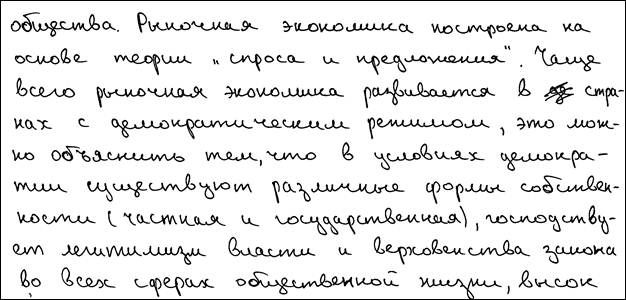 общества. Рыночная экономика построена на
основе теории „спроса и предложения". Чаще
всего рыночная экономика развивается в стра-
нах с демократическим режимом, это мож-
но объяснить тем, что в условиях демокра-
тии существуют различные формы собствен-
ности (частная и государственная), господству-
ет легитимизм власти и верховенства закона
во всех сферах общественной жизни, высок